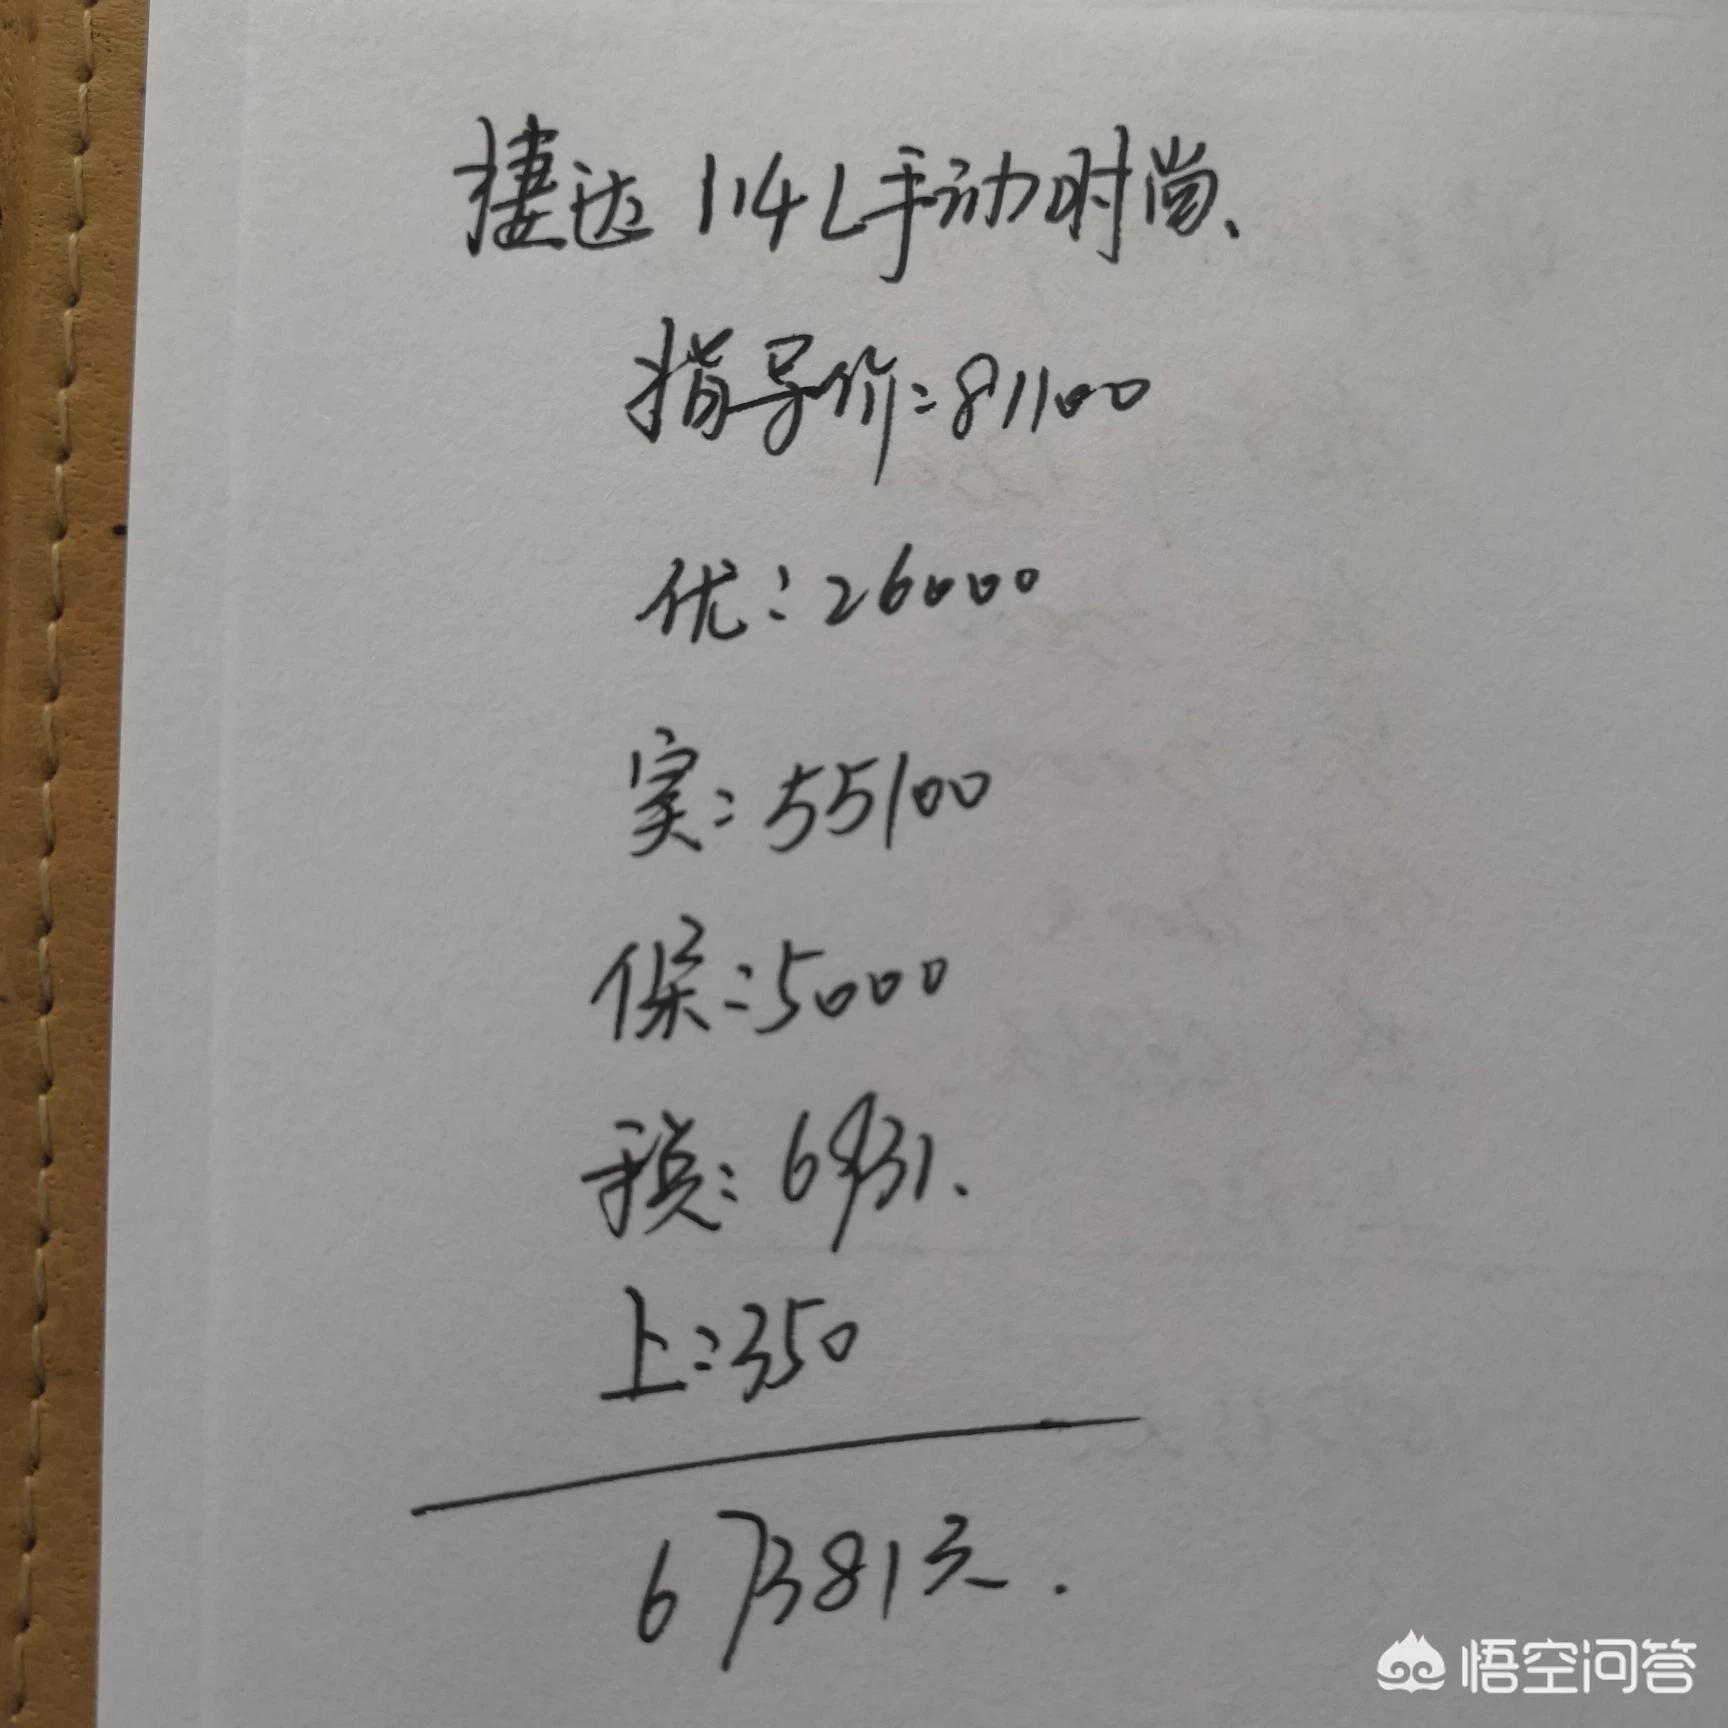 捷达 1.4L手动时尚.
指导价:81100
优:26000
实:55100
保:5000
税:6931.
上:350
67381元.
悟空问答